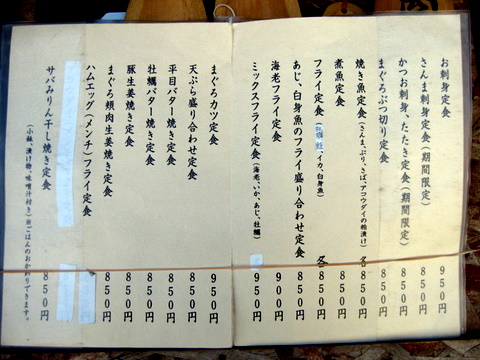 お刺身定食 950円
さんま刺身定食(期間限定) 850円
かつお刺身、たたき定食(期間限定) 850円
まぐろぶつ切り定食 850円
焼き魚定食(さんま、ぶり、さば、アコウダイの粕漬け) 各850円
煮魚定食 850円
フライ定食(牡蠣、鮭、イカ、白身魚) 各850円
あじ、白身魚のフライ盛り合わせ定食 850円
海老フライ定食 900円
ミックスフライ定食(海老、いか、あじ、牡蠣) 950円
まぐろカツ定食 950円
天ぷら盛り合わせ定食 850円
平目バター焼き定食 850円
牡蠣バター焼き定食 850円
豚生姜焼き定食 850円
まぐろ頬肉生姜焼き定食 850円
ハムエッグ(メンチ)フライ定食
サバみりん干し焼き定食 850円
(小鉢、漬け物、味噌汁付き)※ごはんのおかわりできます。